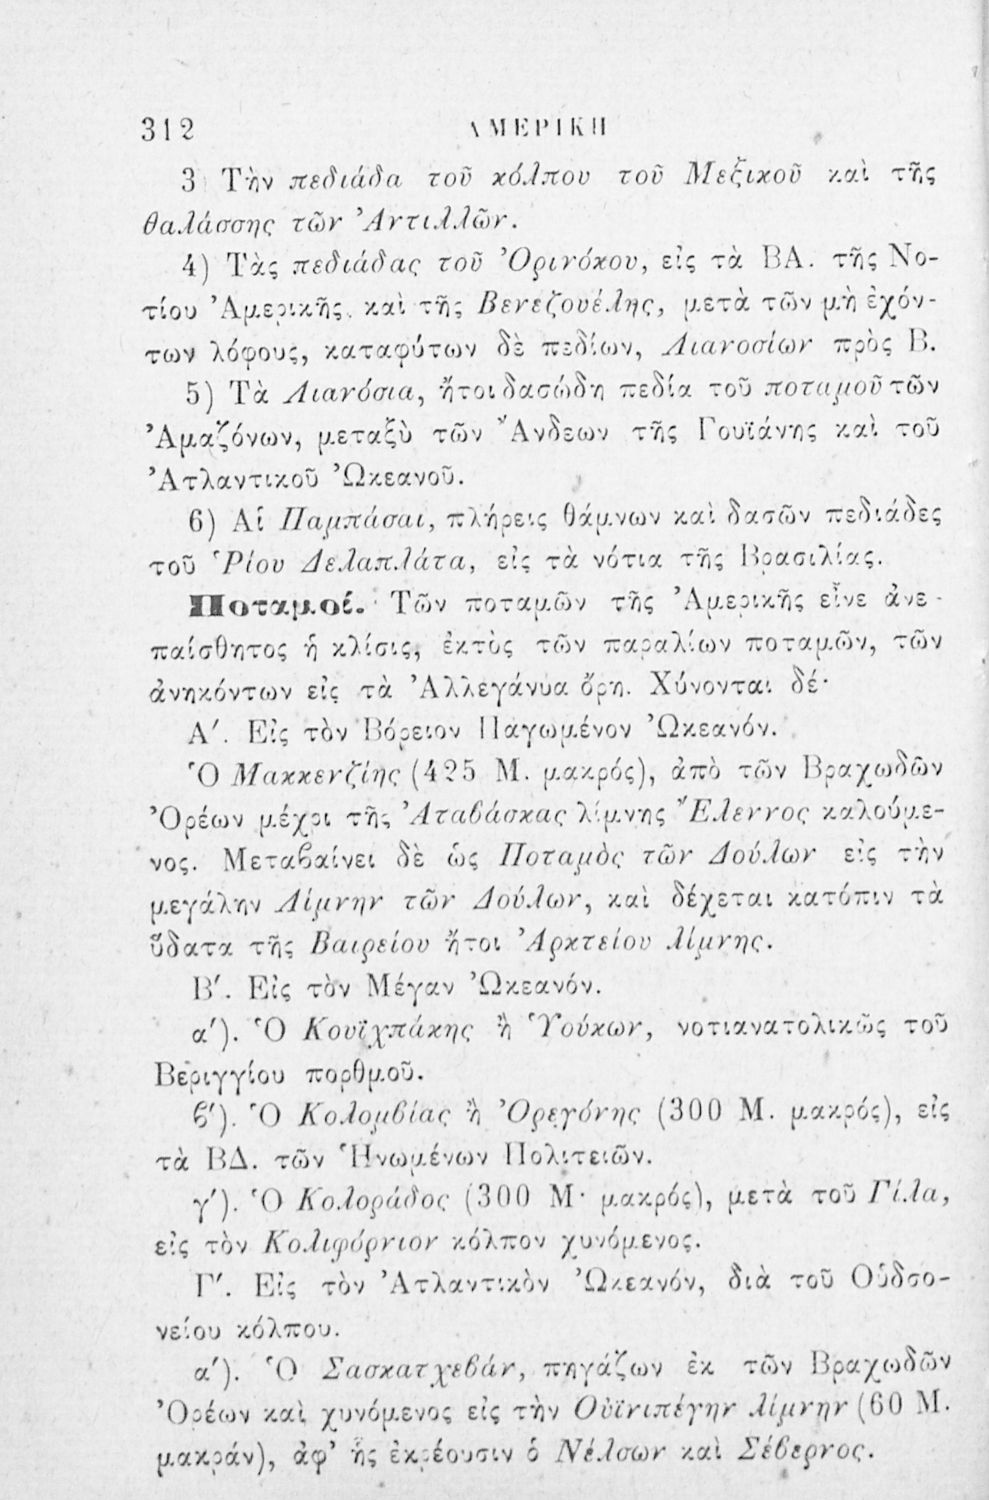 312 ΑΜΕΡΙΚΗ
3) Τὴν πεδιάδα τοῦ κόλπου τοῦ Μεξικοῦ καὶ τῆς
θαλάσσης τῶν Ἀντιλλῶν.
4) Τὰς πεδιάδας τοῦ Ὀρινόκου, εἰς τὰ ΒΑ. τῆς Νο-
τίου Ἀμερικῆς, καὶ τῆς Βενεζουέλης, μετὰ τῶν μὴ ἐχόν-
των λόφους, καταφύτων δὲ πεδίων, Λιανοσίων πρὸς Β.
5) Τὰ Λιανόσια, ἤτοι δασώδη πεδία τοῦ ποταμοῦ τῶν
Ἀμαζόνων, μεταξὺ τῶν Ἄνδεων τῆς Γουϊάνης καὶ τοῦ
Ἀτλαντικοῦ Ὠκεανοῦ.
6) Αἱ Παμπάσαι, πλήρεις θάμνων καὶ δασῶν πεδιάδες
τοῦ Ῥίου Δελαπλάτα, εἰς τὰ νότια τῆς Βρασιλίας.
Ποταμοί. Τῶν ποταμῶν τῆς Ἀμερικῆς εἶνε ἀνε-
παίσθητος ἡ κλίσις, ἐκτὸς τῶν παραλίων ποταμῶν, τῶν
ἀνηκόντων εἰς τὰ Ἀλλεγάνυα ὄρη. Χύνονται δέ·
Α΄. Εἰς τὸν Βόρειον Παγωμένον Ὠκεανόν.
Ὁ Μακκενζίης (425 Μ. μακρός), ἀπὸ τῶν Βραχωδῶν
Ὀρέων μέχρι τῆς Ἀταβάσκας λίμνης Ἔλεννος καλούμε-
νος. Μεταβαίνει δὲ ὡς Ποταμὸς τῶν Δούλων εἰς τὴν
μεγάλην Λίμνην τῶν Δούλων, καὶ δέχεται κατόπιν τὰ
ὕδατα τῆς Βαιρείου ἤτοι Ἀρκτείου λίμνης.
Β΄. Εἰς τὸν Μέγαν Ὠκεανόν.
α΄). Ὁ Κουϊχπάκης ἢ Ὑούκων, νοτιανατολικῶς τοῦ
Βεριγγίου πορθμοῦ.
β΄). Ὁ Κολομβίας ἢ Ὀρεγόνης (300 Μ. μακρός), εἰς
τὰ ΒΔ. τῶν Ἡνωμένων Πολιτειῶν.
γ΄). Ὁ Κολοράδος (300 Μ· μακρός), μετὰ τοῦ Γίλα,
εἰς τὸν Κολιφόρνιον κόλπον χυνόμενος.
Γ΄. Εἰς τὸν Ἀτλαντικὸν Ὠκεανόν, διὰ τοῦ Οὑδσο-
νείου κόλπου.
α΄). Ὁ Σασκατχεβάν, πηγάζων ἐκ τῶν Βραχωδῶν
Ὀρέων καὶ χυνόμενος εἰς τὴν Οὐϊνιπέγην λίμνην (60 Μ.
μακράν), ἀφ’ ἧς ἐκρέουσιν ὁ Νέλσων καὶ Σέβερνος.